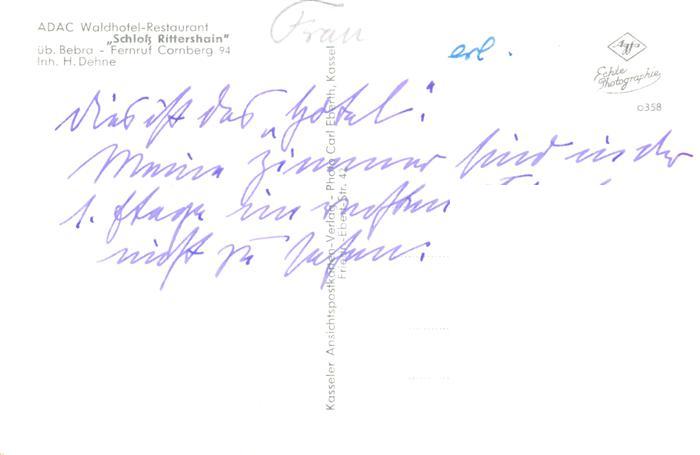 ADAC Waldhotel-Restaurant
„Schloß Rittershain"
üb. Bebra - Fernruf Cornberg 94
Inh. H. Dehne
Frau
erl.
Agfa
Echte
Photographie
o358
Dies ist das „Hotel".
Meine Zimmer sind in der
1. Etage im
nicht zu sehen.
Kasseler Ansichtspostkarten-Verlag - Photo Carl Eberth, Kassel
Friedr.-Ebert-Str. 42